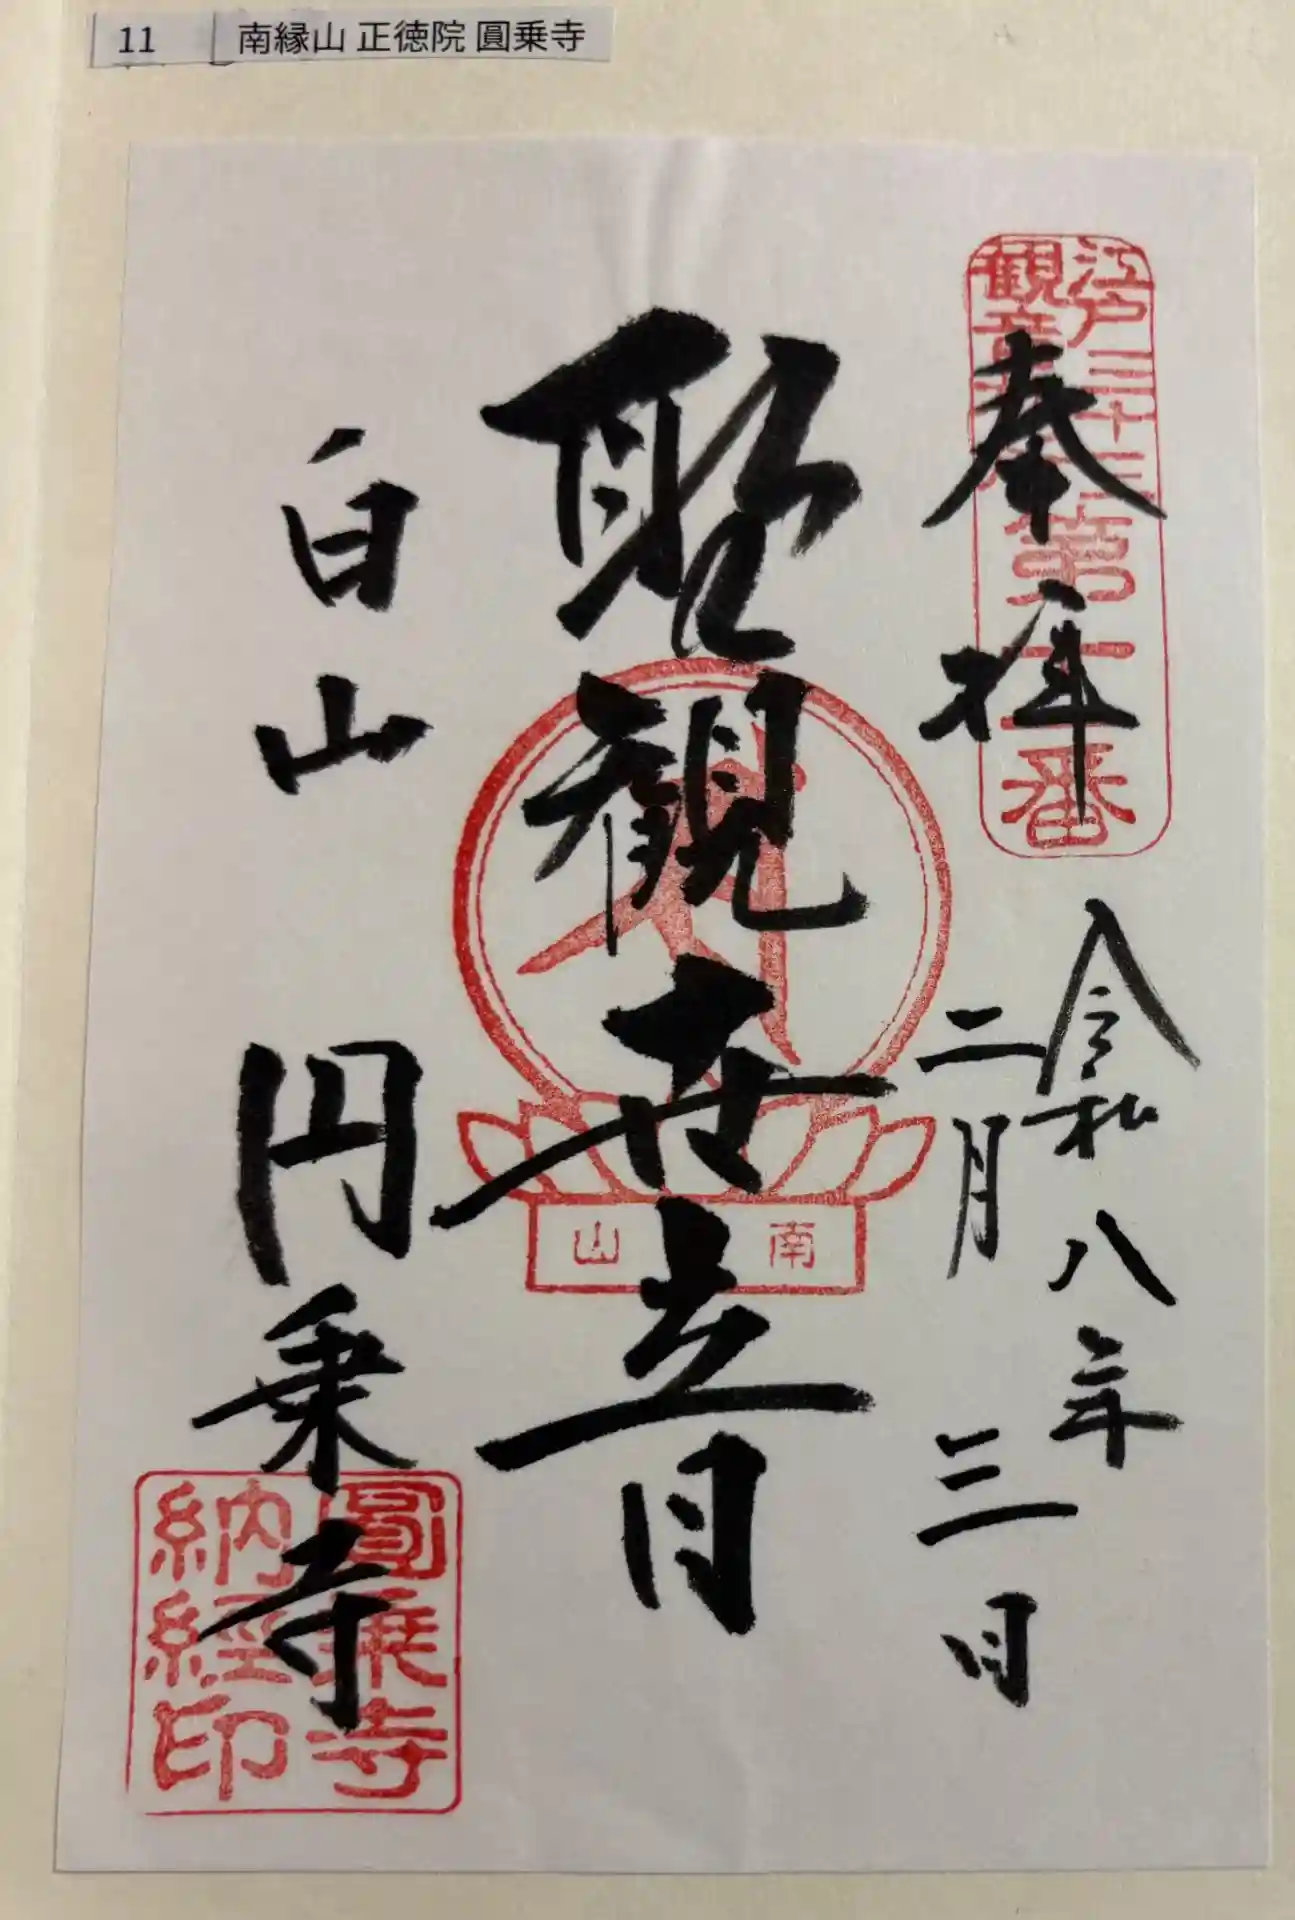 11 南縁山 正徳院 圓乗寺
江戸三十三
観音
第十一番
奉拝
令和八年
二月三日
聖観世音
南
山
白山 円乗寺
圓乗寺
納経印